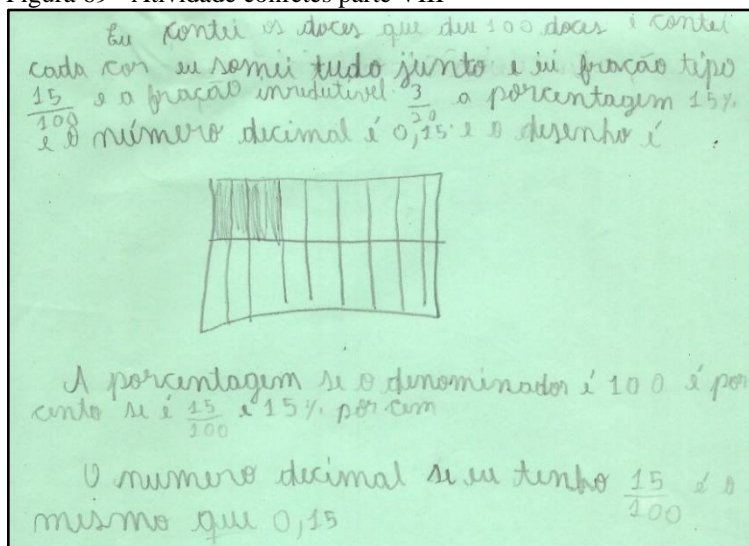 Figura 69 - Atividade confetes parte VIII
Eu contei os doces que deu 100 doces i contei
cada cor eu somei tudo junto e
fração tipo
15/100 e a fração inredutivel 3/20 a porcentagem 15%
e o número decimal é 0,15 e o desenho é
A porcentagem se o denominador é 100 é por
cento se é 15/100 é 15% por cem
O numero decimal se eu tenho 15/100 é o
mesmo que 0,15